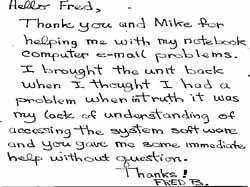 Hello Fred,
Thank you and Mike for
helping me with my notebook
computer e-mail problems.
I brought the unit back
when I thought I had a
problem when intruth it was
my lack of understanding of
accessing the system software
and you gave me some immediate
help without question.
Thanks!
FRED B.